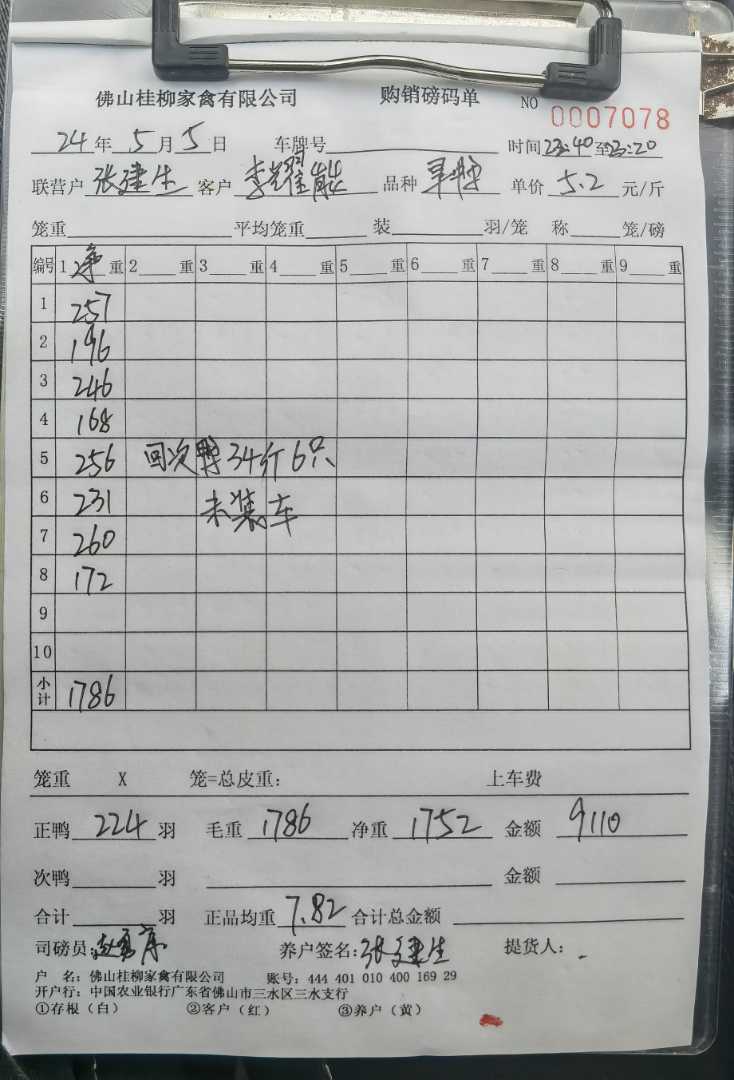 佛山桂柳家禽有限公司 购销磅码单 NO 0007078
24年5月5日 车牌号 时间23:40至23:20
联营户 张建生 客户 李耀能 品种 单价 5.2 元/斤
笼重 平均笼重 装 羽/笼 称 笼/磅
编号 1 净 重 2 重 3 重 4 重 5 重 6 重 7 重 8 重 9 重
1 257
2 196
3 246
4 168
5 256 回次鸭34斤6只
6 231 未装车
7 260
8 172
9
10
小计 1786
笼重 X 笼=总皮重: 上车费
正鸭 224 羽 毛重 1786 净重 1752 金额 9110
次鸭 羽 金额
合计 羽 正品均重 7.82 合计总金额
司磅员: 养户签名:张建生 提货人:
户 名: 佛山桂柳家禽有限公司 账号: 444 401 010 400 169 29
开户行: 中国农业银行广东省佛山市三水区三水支行
①存根(白) ②客户(红) ③养户(黄)